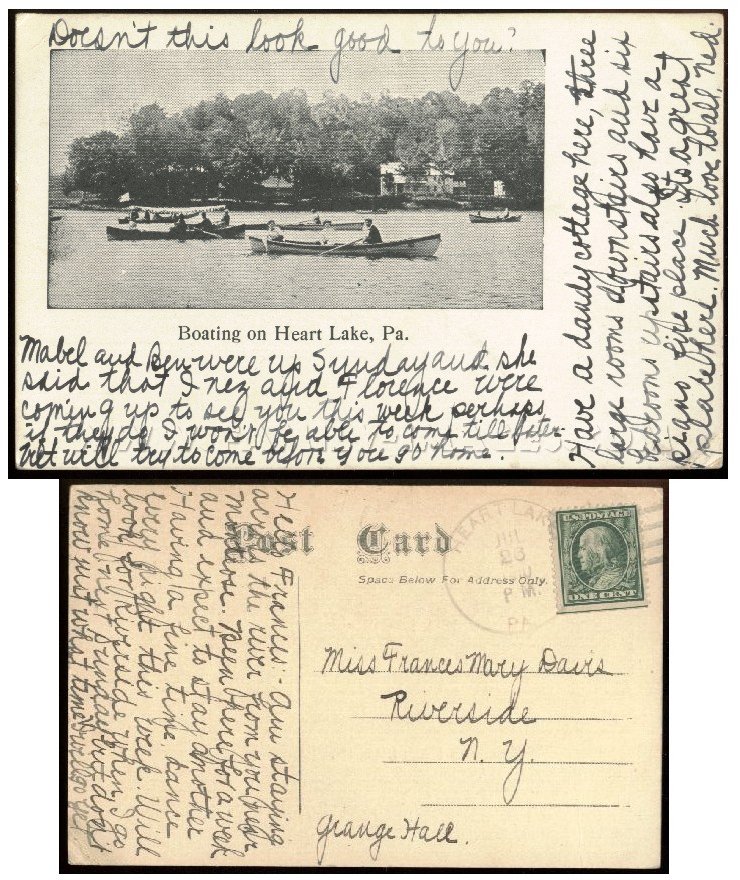 Doesn't this look good to you?
Boating on Heart Lake, Pa.
Mabel and Ben were up Sunday and she
said that Inez and Florence were
coming up to see you this week perhaps
if they do I won't be able to come till later
but will try to come before you go home.
Have a dandy cottage here, three
large rooms downstairs and six
bedrooms upstairs also have a
piano, fire place. Its a great
place here. Much love to all, Ned.
Post Card
Space Below For Address Only.
HEART LAKE
JUL
26
P M
PA
U.S. POSTAGE
ONE CENT
Hello Frances - Am staying
across the river from you near
Montrose. Been here for a week
and expect to stay another
Having a fine time. Dance
every night this week. Will
look for Riverside when I go
home next Sunday but don't
know just what time I will go yet
Miss Frances Mary Davis
Riverside
N. Y.
Grange Hall.